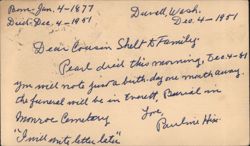 Born - Jan. 4 - 1877
Died - Dec. 4 - 1951
Duvall, Wash.
Dec. 4 - 1951
Dear Cousin Shelt & Family
Pearl died this morning, Dec. 4 - 51
you will note just a birthday one month away.
the funeral will be in Everett, Burial in
Monroe Cemetery
Love,
Pauline
"I will write letter later"